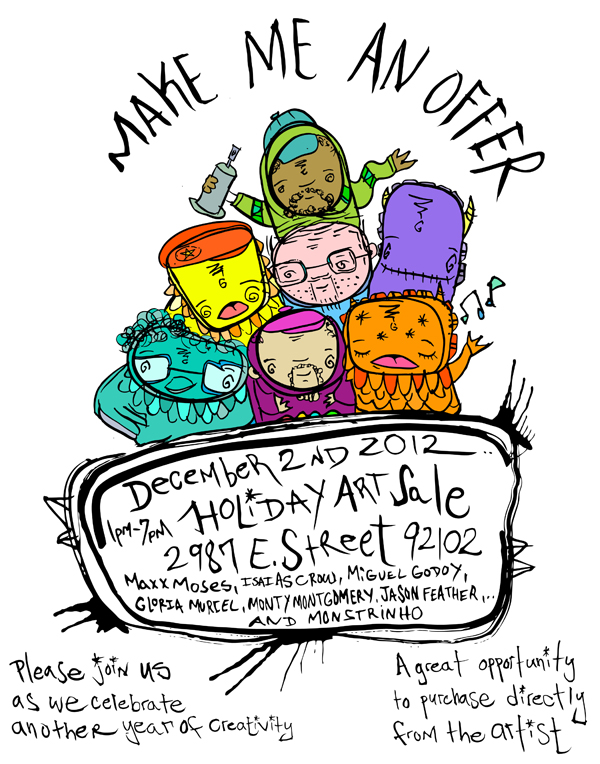 MAKE ME AN OFFER
DECEMBER 2ND 2012..
1PM-7PM HOLiDAY ART Sale
2987 E. StReet 92102
MAXX MOSES, ISAIAS CROW, MiGUEL GODOY,
GLORIA MURIEL, MONTY MONTGOMERY, JASON FEATHER,..
AND MONSTRINHO
Please join us
as we celebrate
another year of creativity
A great opportunity
to purchase directly
from the artist